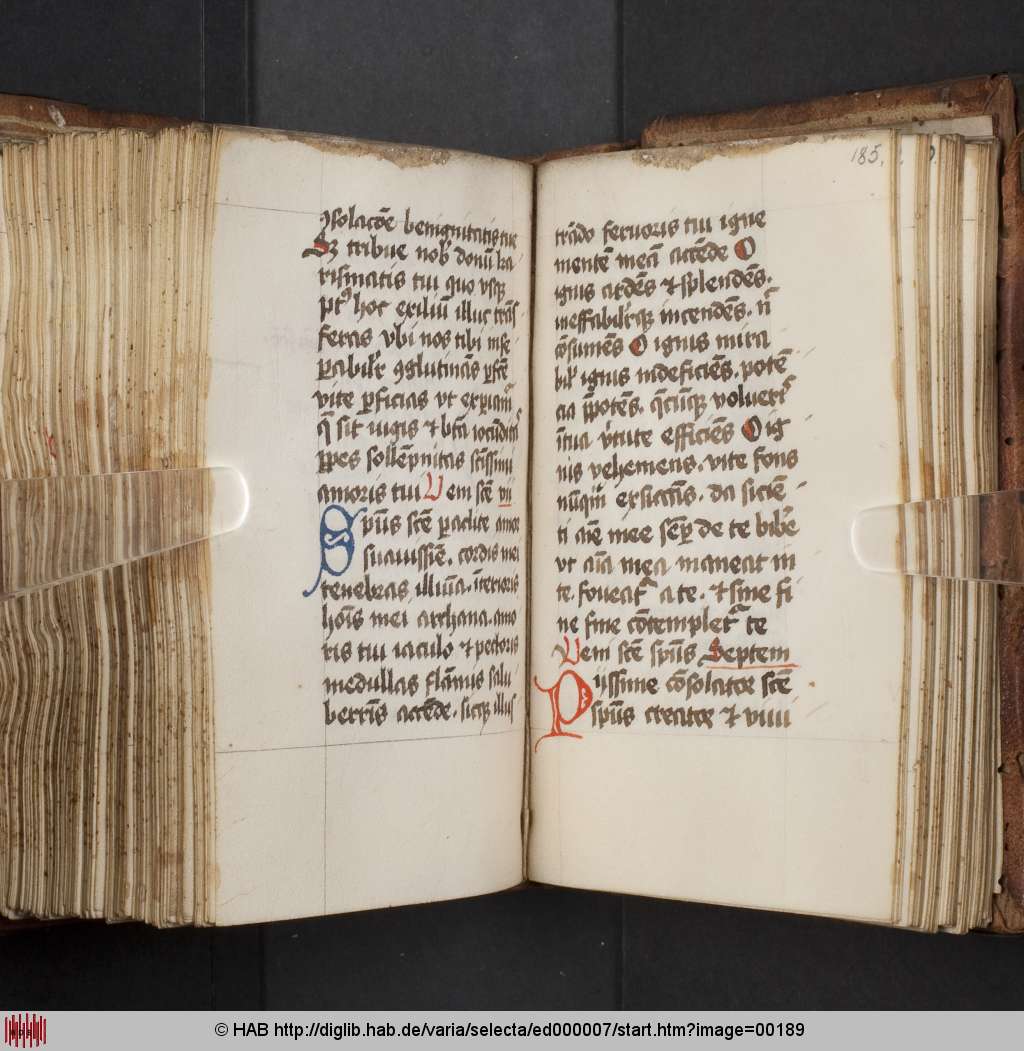 ꝯsolacōe benignitatis tue
Sꝫ tribue nob donū ka
rismatis tui quo vsqꝫ
pt hoc exiliū illuc trās
feras vbi nos tibi inse
ꝑabilr ꝯglutinās ꝑfcē
vite ꝑficias vt expiam
q̄ sit iugis & btā iocūdita
ꝑpes sollēpnitas scissimi
amoris tui Uem scē vij
Spūs scē paclite amor
suauissiē. cordis mei
tenebras illuīa. īterioris
hoīs mei archana amo
ris tui iaculo & pectoris
medullas flāmis salu
berrīs accēde. sicqꝫ illus
185.
trādo feruoris tui igne
mentē meā accēde O
ignis ardēs & splendēs.
ineffabilrqꝫ incendēs. n̄
cōsumēs O ignis mira
bil ignis īdeficiēs. potē
cia p̄potēs. qcūqꝫ voluer
ītua vtute efficiēs O ig
nis vehemens. vite fons
nūqm exsiccās. da sicіē
ti aīe mee semꝑ de te bibe
vt aīa mea maneat in
te. foueat a te. & sine fi
ne fine cōtemplet te
Uem scē spūs Septem
Pijssime cōsolator scē
spūs creator & viui
© HAB http://diglib.hab.de/varia/selecta/ed000007/start.htm?image=00189